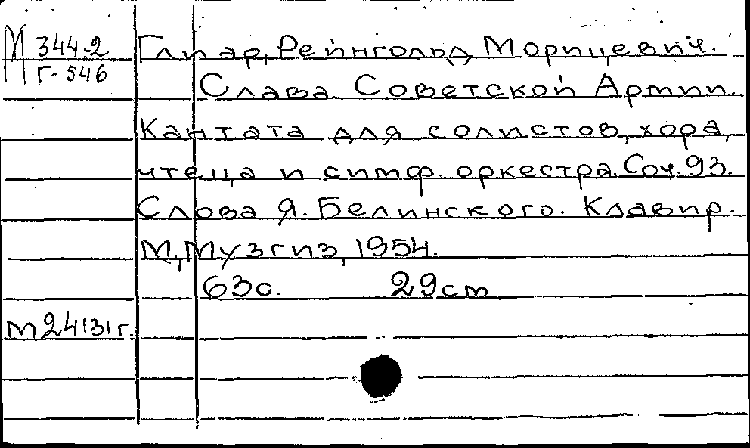 М 344-2
Г-546
Глиэр, Рейнгольд Морицевич.
Слава Советской Армии.
Кантата для солистов, хора,
чтеца и симф. оркестра. Соч. 93.
Слова Я. Белинского. Клавир.
М., Музгиз, 1954.
63 с. 29 см
М24131г.